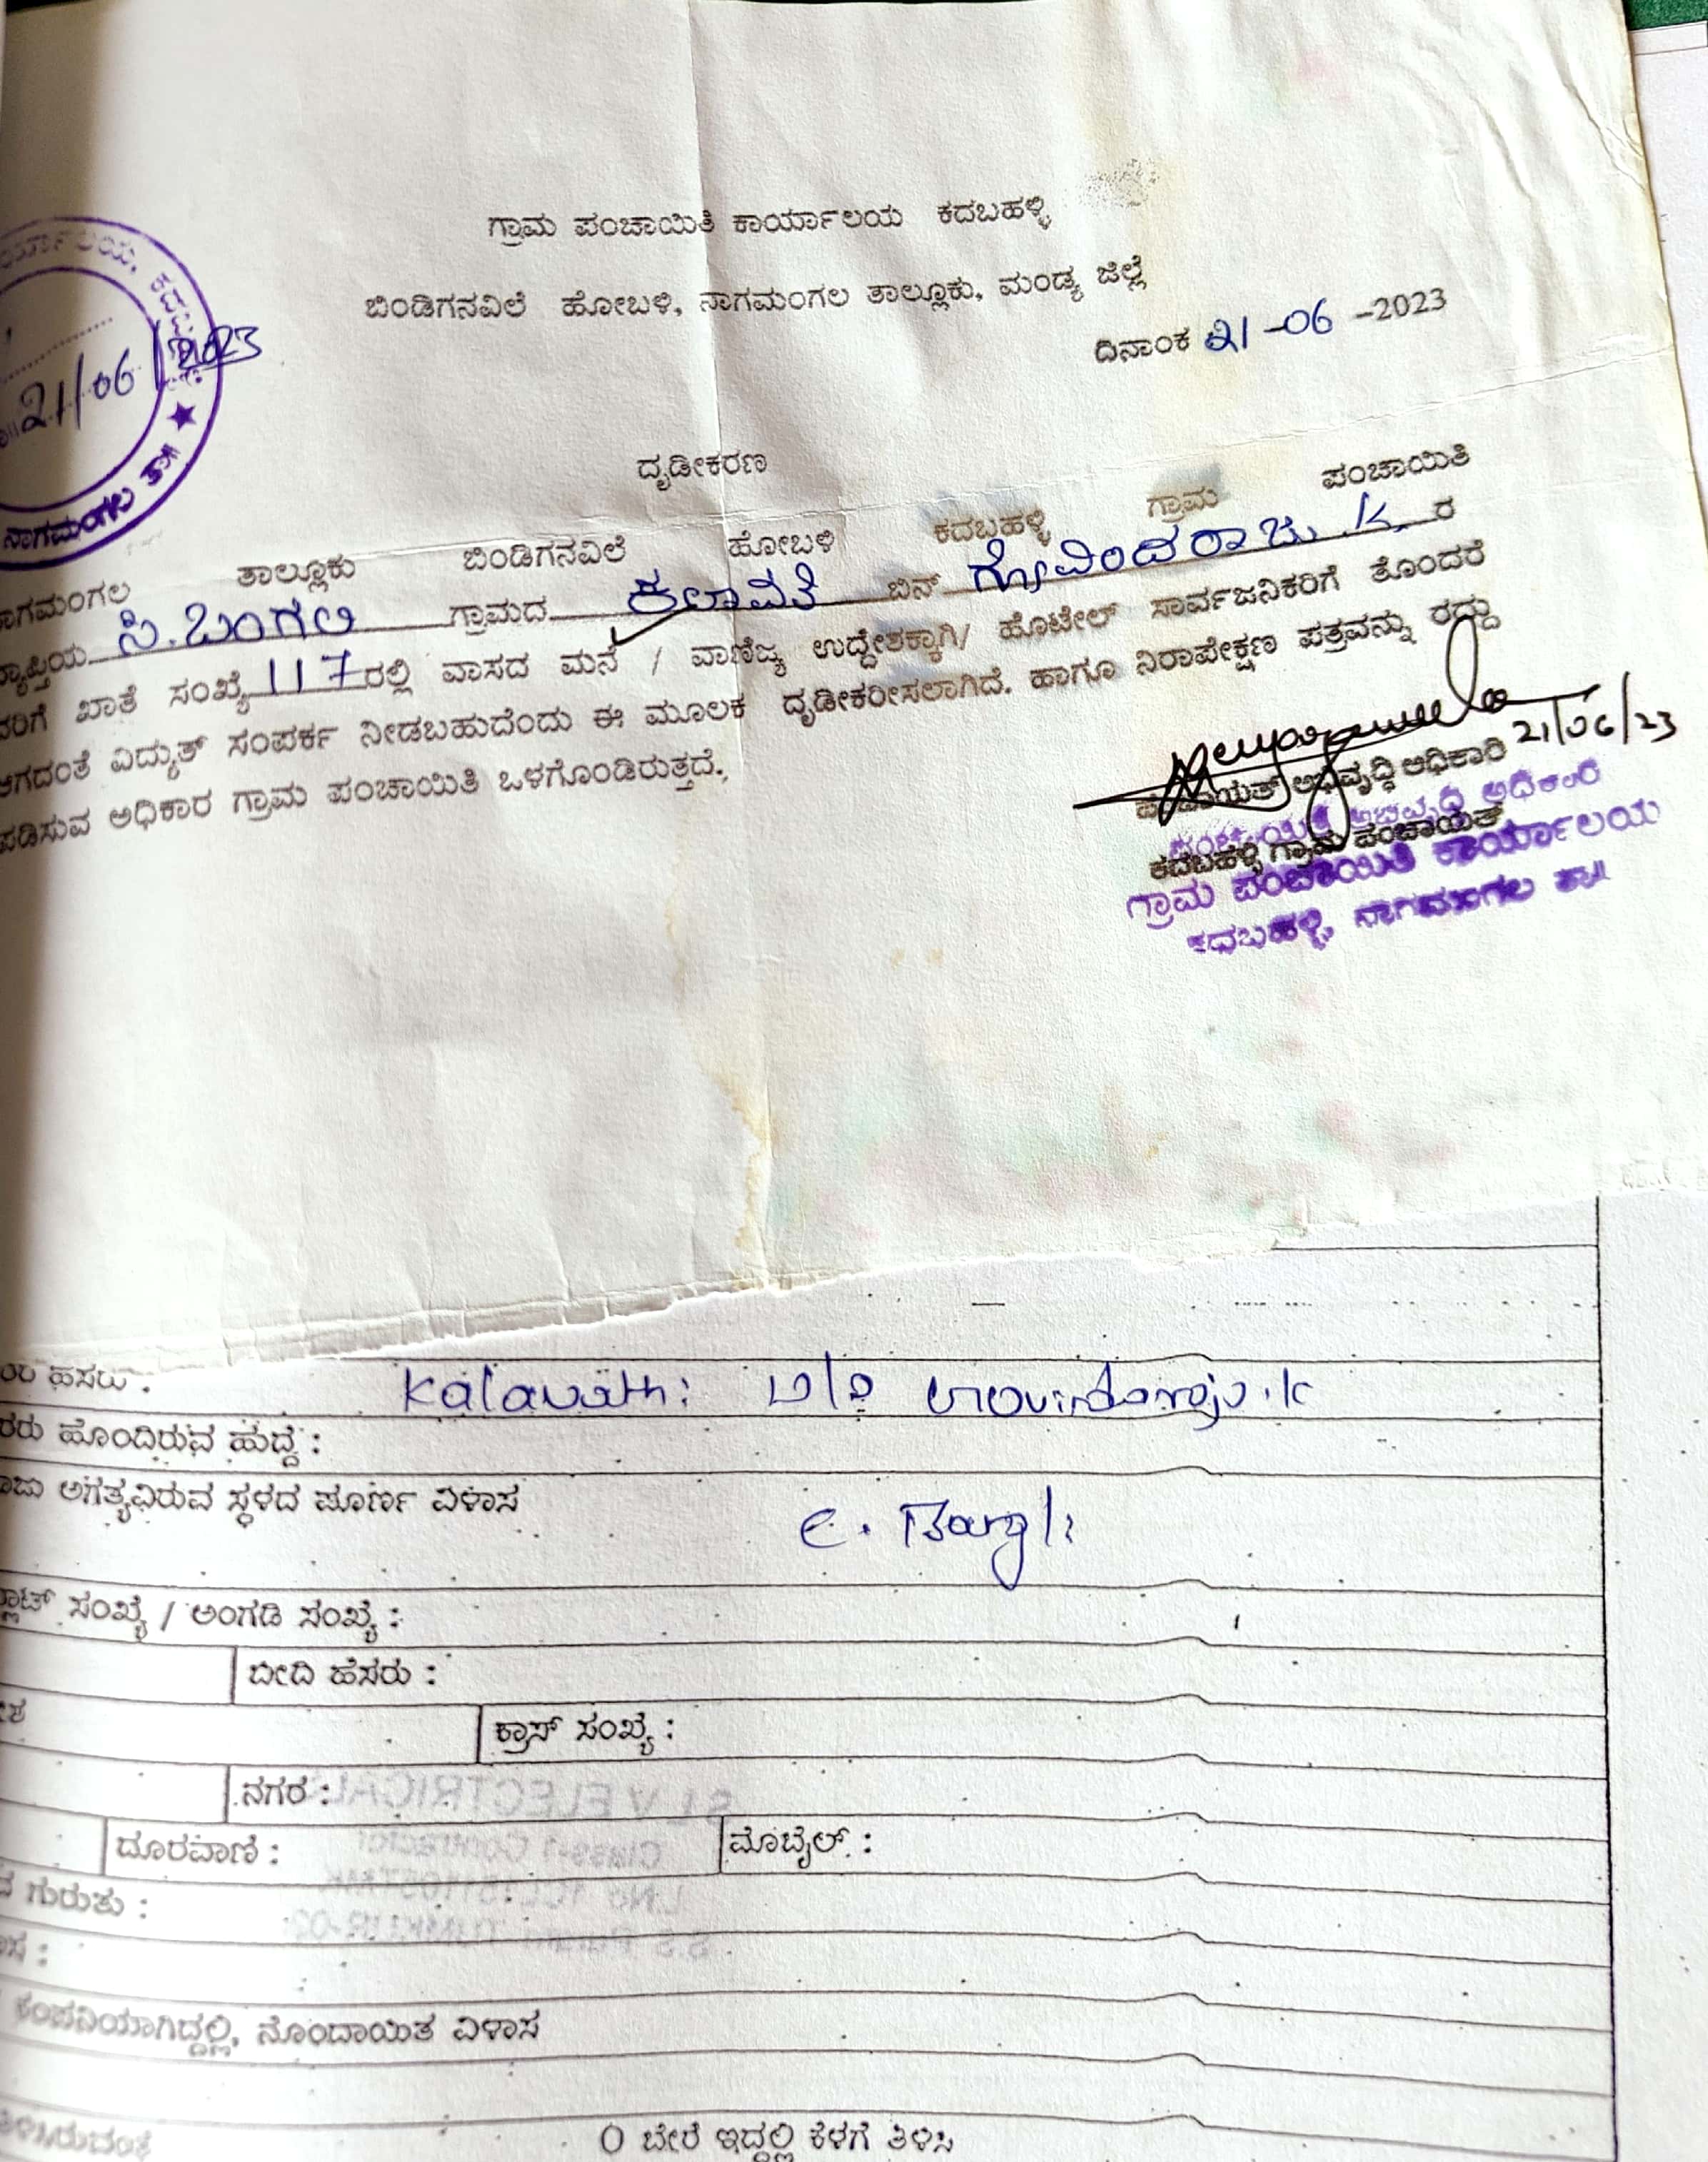 ಗ್ರಾಮ ಪಂಚಾಯಿತಿ ಕಾರ್ಯಾಲಯ ಕದಬಹಳ್ಳಿ
ಬಿಂಡಿಗನವಿಲೆ ಹೋಬಳಿ, ನಾಗಮಂಗಲ ತಾಲ್ಲೂಕು, ಮಂಡ್ಯ ಜಿಲ್ಲೆ
ದಿನಾಂಕ 21-06-2023
21/06/2023
ನಾಗಮಂಗಲ
ದೃಡೀಕರಣ
ನಾಗಮಂಗಲ ತಾಲ್ಲೂಕು ಬಿಂಡಿಗನವಿಲೆ ಹೋಬಳಿ ಕದಬಹಳ್ಳಿ ಗ್ರಾಮ ಪಂಚಾಯಿತಿ
ವ್ಯಾಪ್ತಿಯ ಸಿ.ಬಂಗಲಿ ಗ್ರಾಮದ ಕಲಾವತಿ ಬಿನ್ ಗೋವಿಂದರಾಜು.K. ರ
ವರಿಗೆ ಖಾತೆ ಸಂಖ್ಯೆ 117 ರಲ್ಲಿ ವಾಸದ ಮನೆ / ವಾಣಿಜ್ಯ ಉದ್ದೇಶಕ್ಕಾಗಿ/ ಹೊಟೇಲ್ ಸಾರ್ವಜನಿಕರಿಗೆ ತೊಂದರೆ
ಆಗದಂತೆ ವಿದ್ಯುತ್ ಸಂಪರ್ಕ ನೀಡಬಹುದೆಂದು ಈ ಮೂಲಕ ದೃಡೀಕರೀಸಲಾಗಿದೆ. ಹಾಗೂ ನಿರಾಪೇಕ್ಷಣ ಪತ್ರವನ್ನು ರದ್ದು
ಪಡಿಸುವ ಅಧಿಕಾರ ಗ್ರಾಮ ಪಂಚಾಯಿತಿ ಒಳಗೊಂಡಿರುತ್ತದೆ.
21/06/23
ಪಂಚಾಯತ್ ಅಭಿವೃದ್ಧಿ ಅಧಿಕಾರಿ
ಪಂಚಾಯಿತಿ ಅಭಿವೃದ್ಧಿ ಅಧಿಕಾರಿ
ಕದಬಹಳ್ಳಿ ಗ್ರಾಮ ಪಂಚಾಯತ್
ಗ್ರಾಮ ಪಂಚಾಯಿತಿ ಕಾರ್ಯಾಲಯ
ಕದಬಹಳ್ಳಿ, ನಾಗಮಂಗಲ ತಾ॥
ಹೆಸರು : Kalavathi D/o Govindaraju.K
ಹೊಂದಿರುವ ಹುದ್ದೆ :
ಅಗತ್ಯವಿರುವ ಸ್ಥಳದ ಪೂರ್ಣ ವಿಳಾಸ C. Bangli
ಸಂಖ್ಯೆ / ಅಂಗಡಿ ಸಂಖ್ಯೆ :
ಬೀದಿ ಹೆಸರು :
ಕ್ರಾಸ್ ಸಂಖ್ಯೆ :
ನಗರ :
ದೂರವಾಣಿ : ಮೊಬೈಲ್ :
ಗುರುತು :
ಕಂಪನಿಯಾಗಿದ್ದಲ್ಲಿ, ನೊಂದಾಯಿತ ವಿಳಾಸ
O ಬೇರೆ ಇದ್ದಲ್ಲಿ ಕೆಳಗೆ ತಿಳಿಸಿ